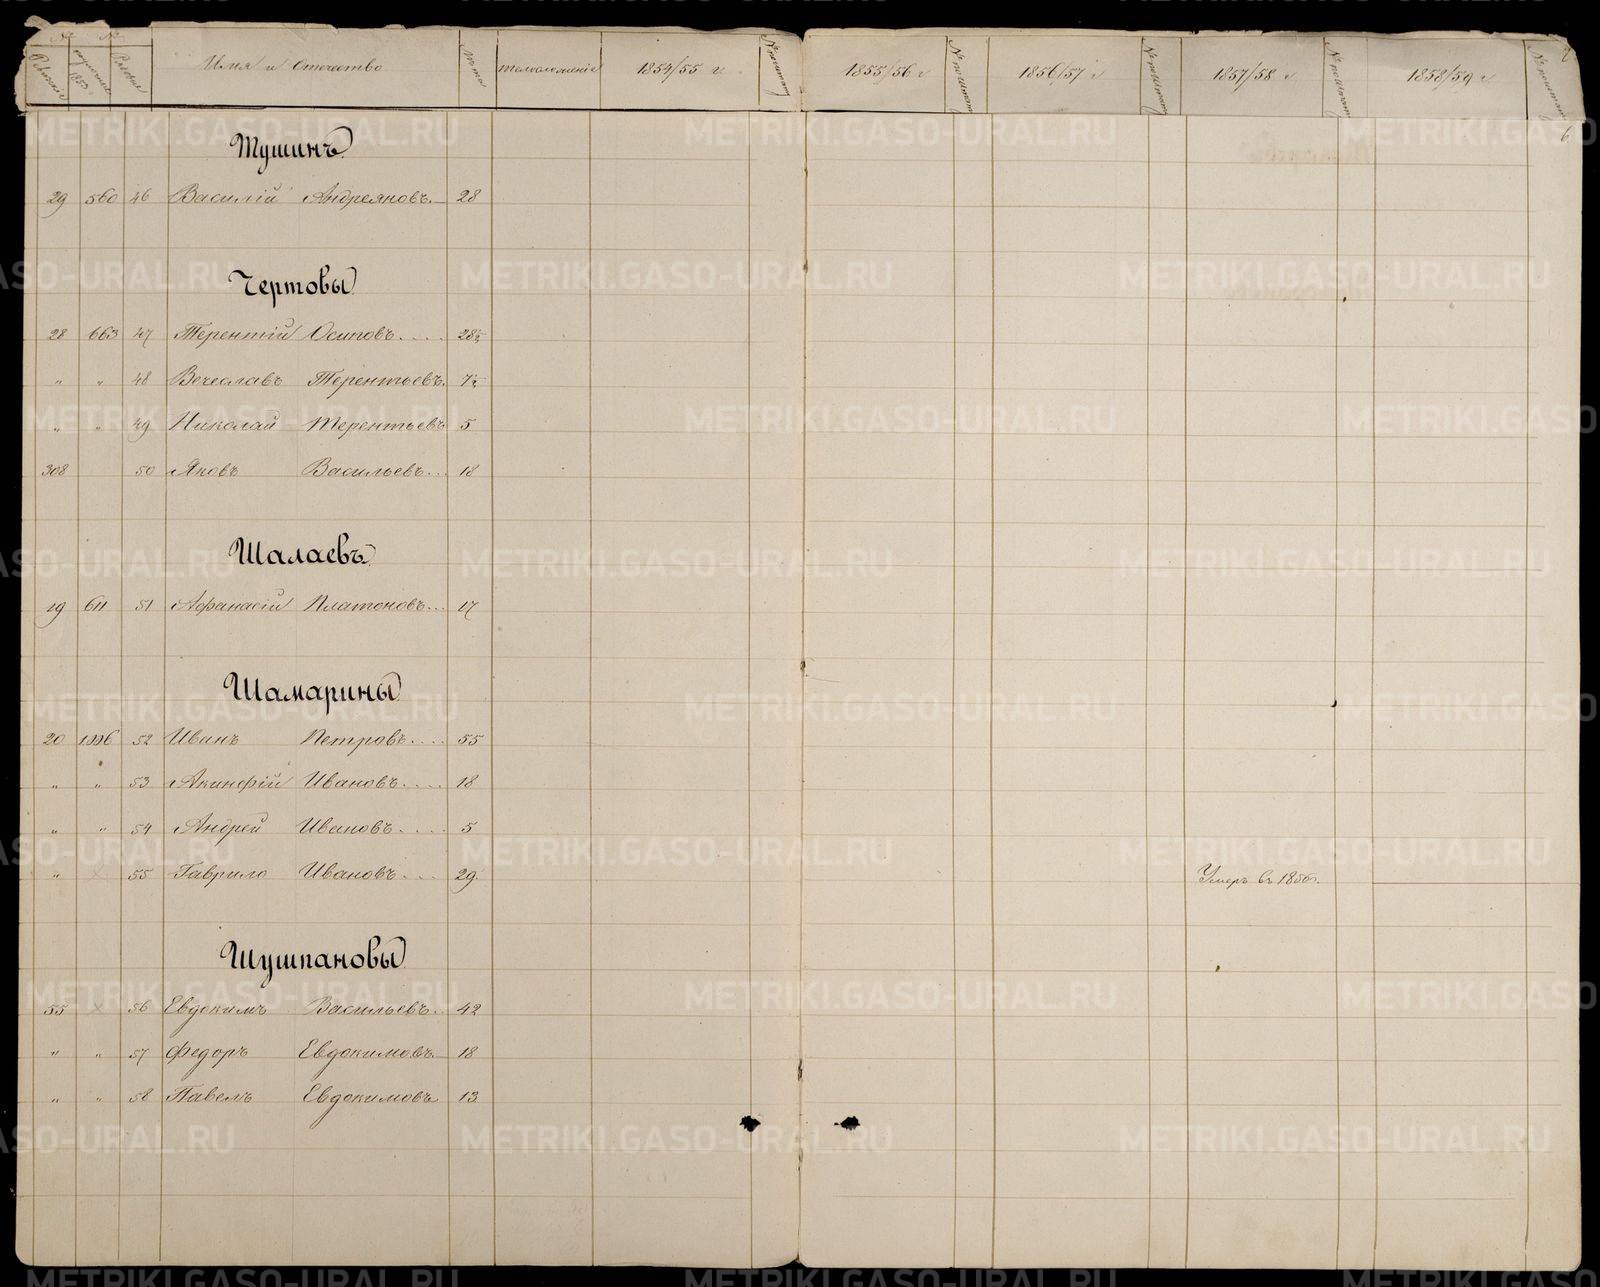 № № 
Ревизскіе 1853 Рядовые Имя и Отчество Лѣта телосложеніе 1854/55 г. 1855/56 г 1856/57 г 1857/58 г 1858/59 г
6
Тушинъ
29 560 46 Василій Андреяновъ. 28
Чертовы
28 663 47 Терентій Осиповъ.... 28½
" " 48 Вячеславъ Терентьевъ. 7½
" " 49 Николай Терентьевъ 5
308 50 Яковъ Васильевъ... 18
Шалаевъ
19 611 51 Афанасій Платоновъ... 17
Шамарины
20 52 Иванъ Петровъ.... 55
" " 53 Акинфій Ивановъ.... 18
" " 54 Андрей Ивановъ.... 5
" 55 Гаврило Ивановъ.... 29. Умеръ въ 1856.
Шушпановы
55 56 Евдокимъ Васильевъ.. 42
" " 57 Федоръ Евдокимовъ. 18
" " 58 Павелъ Евдокимовъ 13
METRIKI.GASO-URAL.RU